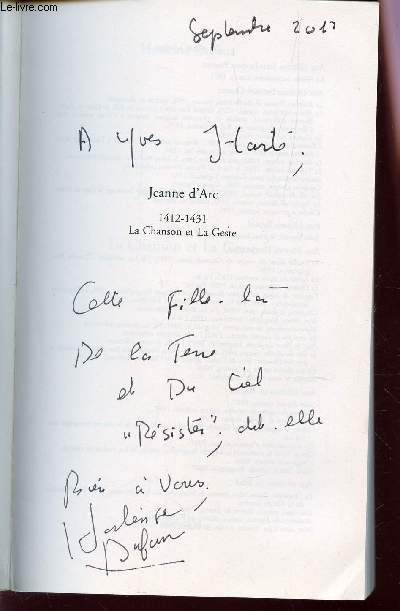 Septembre 2012
A Yves Harté,
Jeanne d'Arc
1412-1431
La Chanson et La Geste
Cette Fille-là
De la Terre
et Du Ciel
"Résister", dit-elle
Bien à Vous,
Hortense
Dufour
© le-livre.com